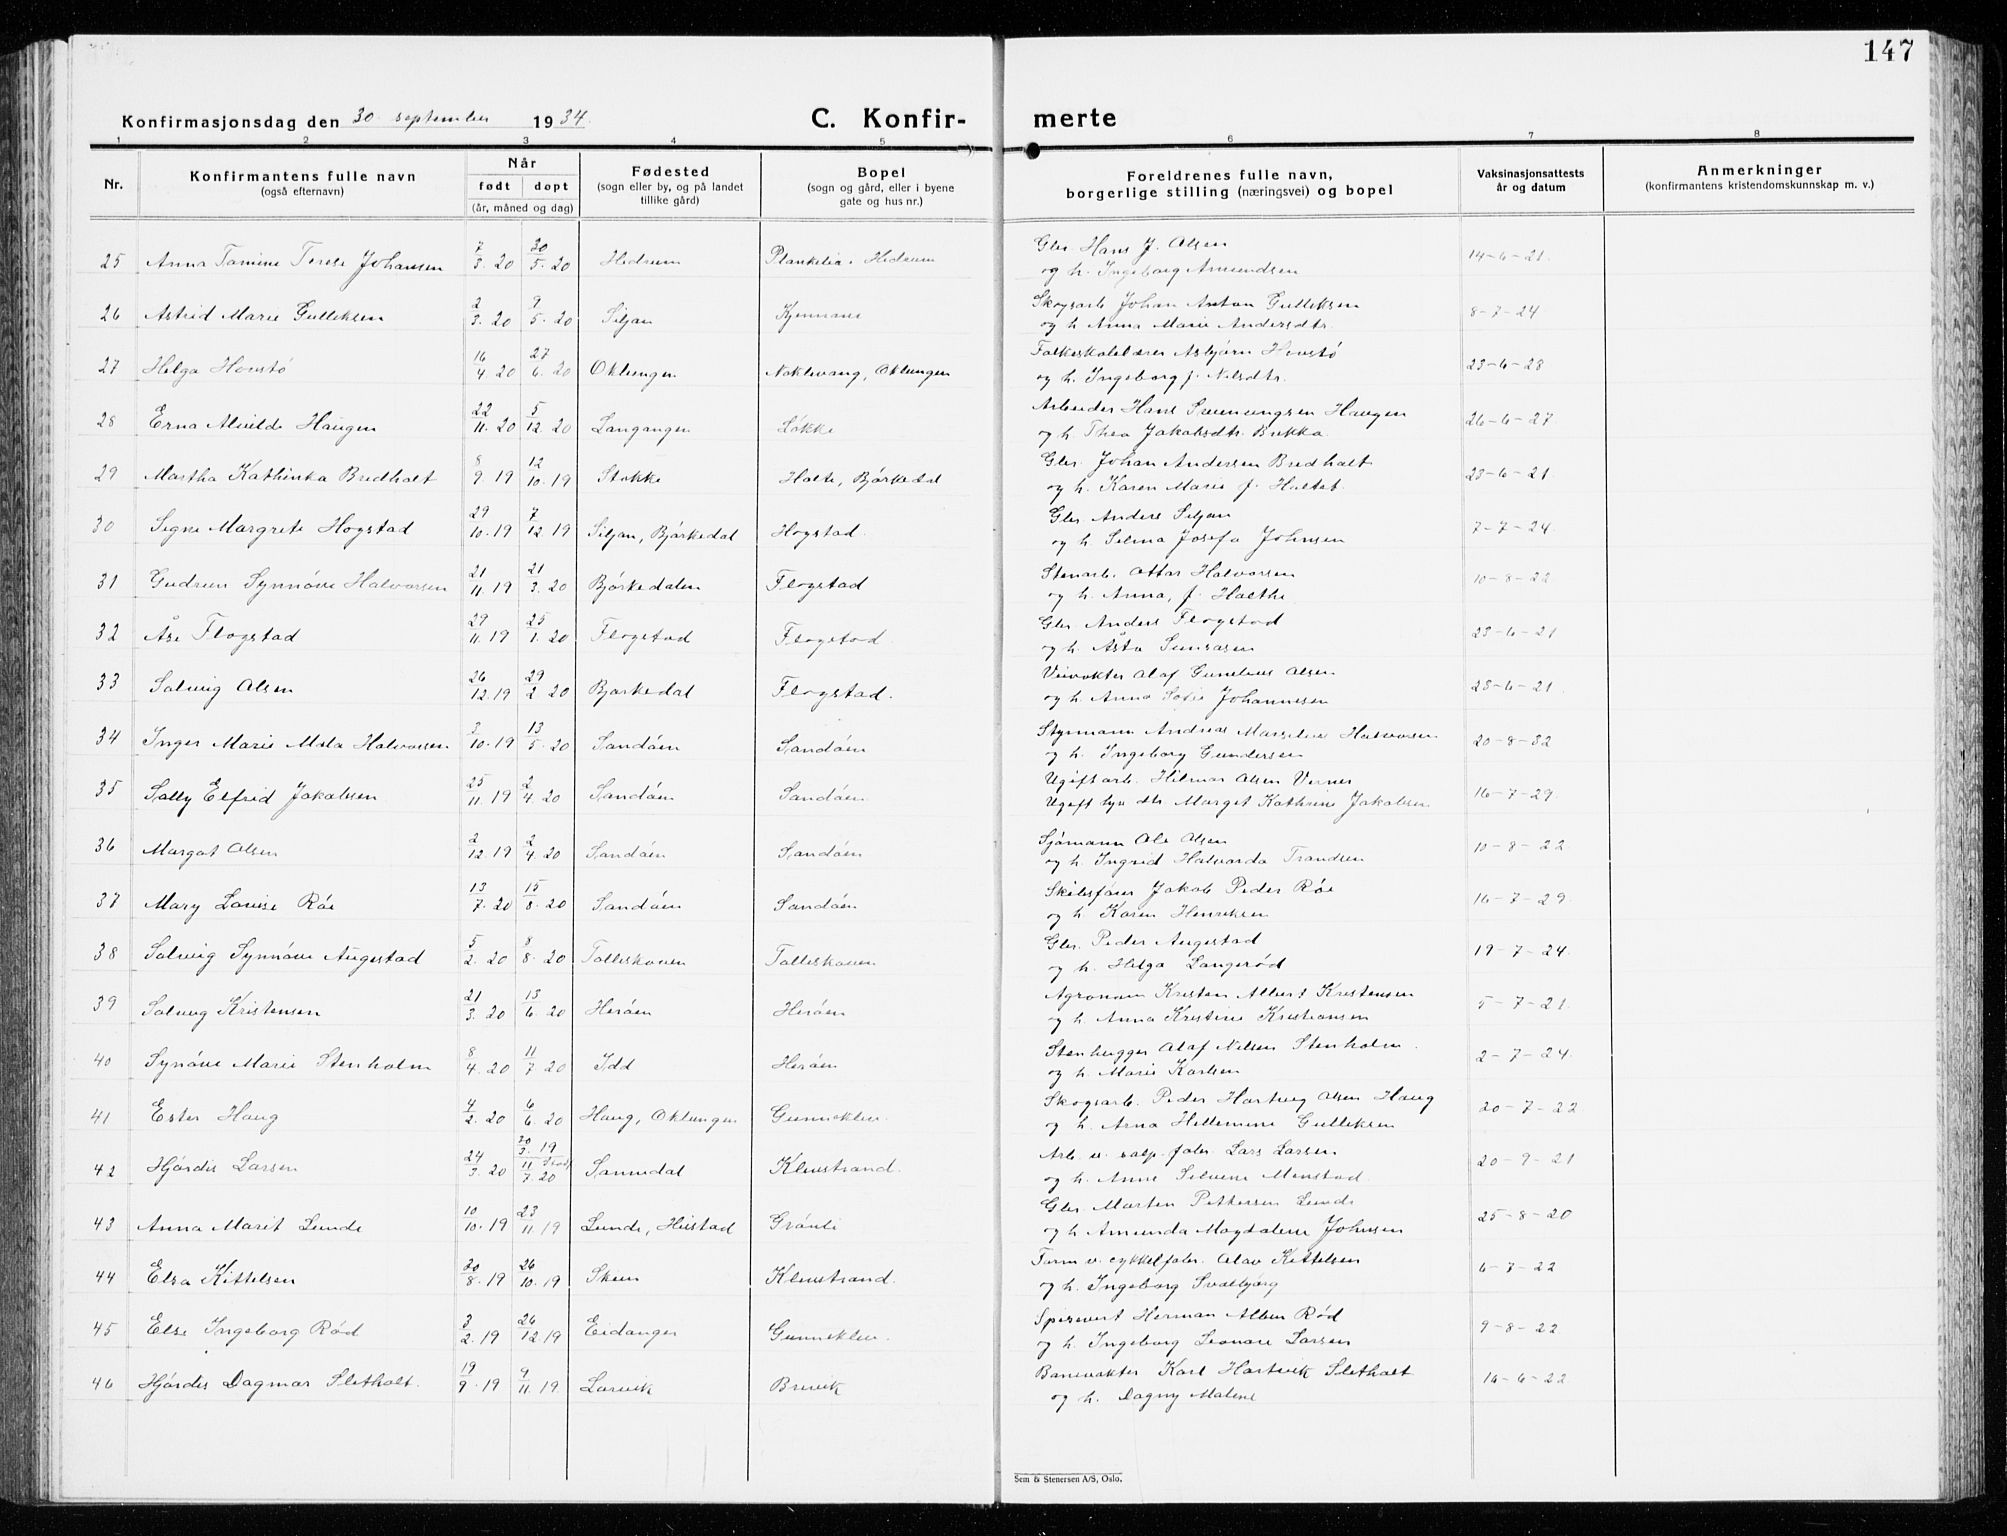 147
Konfirmasjonsdag den 30 september 1934.
C. Konfir- merte
1 2 3 4 5 6 7 8
Nr. Konfirmantens fulle navn (også efternavn) Når født døpt (år, måned og dag) Fødested (sogn eller by, og på landet tillike gård) Bopel (sogn og gård, eller i byene gate og hus nr.) Foreldrenes fulle navn, borgerlige stilling (næringsvei) og bopel Vaksinasjonsattests år og datum Anmerkninger (konfirmantens kristendomskunnskap m. v.)
25 Anna Tomine Terese Johansen 7/3. 20 30/5. 20 Hedrum Plankelia, Hedrum Gbr. Hans J. Olsen og h. Ingeborg Amundsen 14-6-21.
26 Astrid Marie Gulliksen 2/3. 20 9/5. 20 Siljan Skogsarb. Johan Anton Gulliksen og h. Anna Marie Andersdtr. 8-7-24
27 Helga Hovstø 16/4. 20 27/6. 20 Oklungen Naklevang, Oklungen Folkeskolelærer Asbjørn Hovstø og h. Ingeborg f. Nilsdtr. 23-6-28
28 Erna Alvilde Haugen 22/11. 20 5/12. 20 Langangen Løkke Arbeider Hans Svenungsen Haugen og h. Thea Jakobsdtr. Bukka 26-6-27
29 Martha Kathinka Bredholt 8/9. 19 12/10. 19 Stokke Holte, Bjørkedal Gbr. Johan Andersen Bredholt og h. Karen Marie f. Holtet 23-6-21
30 Signe Margrete Hogstad 29/10. 19 7/12. 19 Siljan, Bjørkedal Hogstad. Gbr. Anders Siljan og h. Selma Josefa Johnsen 7-7-24
31 Gudrun Synnøve Halvorsen 21/11. 19 21/3. 20 Bjørkedalen Flogstad Stenarb. Ottar Halvorsen og h. Anna, f. Holthe 10-8-22
32 Åse Flogstad 29/11. 19 25/1. 20 Flogstad Flogstad. Gbr. Anders Flogstad og h. Åsta 23-6-21
33 Solveig Olsen 26/12. 19 29/2. 20 Bjørkedal Flogstad. Veivokter Olaf Gunelius Olsen og h. Anna Sofie Johannesen 28-6-21
34 Inger Marie Mala Halvorsen 3/10. 19 13/5. 20 Sandøen Sandøen Styrmann Andreas Marselius Halvorsen og h. Ingeborg Gundersen 20-8-32
35 Solly Elfrid Jakobsen 25/11. 19 2/4. 20 Sandøen Sandøen Ugift arb. Hilmar Olsen Verner Ugift hus dtr. Margit Kathrine Jakobsen 16-7-29.
36 Margot Olsen 2/12. 19 2/4. 20 Sandøen Sandøen Sjømann Ole Olsen og h. Ingrid Halvarda Trandsen 10-8-22.
37 Mary Lovise Røe 13/7. 20 15/8. 20 Sandøen Sandøen Skibsfører Jakob Peder Røe og h. Karen Henriksen 16-7-29.
38 Solveig Synnøve Augestad 5/2. 20 8/8. 20 Tolleskoven Tolleskoven Gbr. Peder Augestad og h. Helga Langerød 19-7-24.
39 Solveig Kristensen 21/3. 20 13/6. 20 Herøen Herøen Agronom Kristen Albert Kristensen og h. Anna Kristine Kristiansen 5-7-21.
40 Synøve Marie Stenholm 8/4. 20 11/7. 20 Idd Herøen Stenhugger Olaf Nilsen Stenholm. og h. Marie Karlsen 2-7-24.
41 Ester Haug 4/2. 20 6/6. 20 Haug, Oklungen Gunneklev. Skogsarb. Peder Hartvig Olsen Haug og h. Arna Hellemine Gulliksen 20-7-22.
42 Hjørdis Larsen 24/3. 20 11/7. 20 Sannidal Klevstrand. Arb. v. salp. fabr. Lars Larsen og h. Anne Menstad. 20-9-21
43 Anna Marit Lunde 10/10. 19 23/11. 19 Lunde, Heistad Grønli Gbr. Morten Pettersen Lunde og h Amunda Magdalene Johnsen 25-8-20
44 Elsa Kittelsen 20/8. 19 26/10. 19 Skien Klevstrand. Form. v. cykkelfabr. Olav Kittelsen og h. Ingeborg Svalbjørg 6-7-22
45 Else Ingeborg Rød 3/2. 19 26/12. 19 Eidanger Gunneklev. Spisevert Herman Alben Rød og h. Ingeborg Leonore Larsen 9-8-22
46 Hjørdis Dagmar Sletholt. 19/9. 19 9/11. 19. Larvik Brevik Banevokter Karl Hartvik Sletholt og h. Dagny Malene 14-6-22
Sem & Stenersen A/S, Oslo.